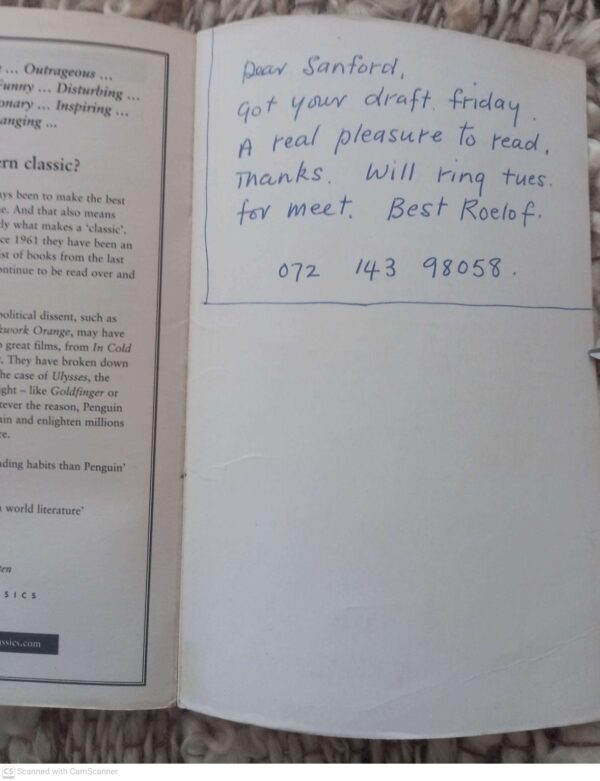 ... Outrageous ...
unny ... Disturbing ...
onary ... Inspiring ...
anging ...
rn classic?
ys been to make the best
e. And that also means
ly what makes a 'classic'.
ce 1961 they have been an
st of books from the last
ontinue to be read over and
political dissent, such as
kwork Orange, may have
great films, from In Cold
. They have broken down
he case of Ulysses, the
ght – like Goldfinger or
tever the reason, Penguin
ain and enlighten millions
re.
ding habits than Penguin'
world literature'
ten
SICS
ssics.com
Dear Sanford,
Got your draft friday.
A real pleasure to read,
Thanks. Will ring tues.
for meet. Best Roelof.
072 143 98058.
CS Scanned with CamScanner